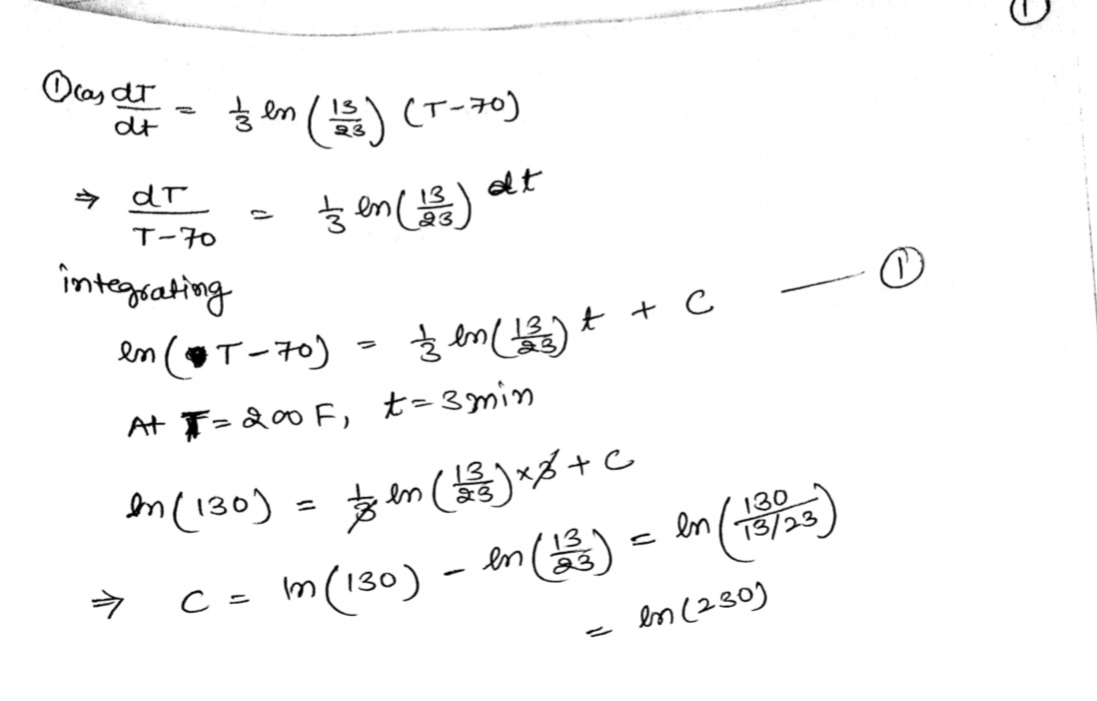 ①
①(a) dT/dt = 1/3 ln(13/23) (T-70)
⇒ dT/(T-70) = 1/3 ln(13/23) dt
integrating
ln(T-70) = 1/3 ln(13/23) t + C —— ①
At T=200F, t=3min
ln(130) = 1/3 ln(13/23)×3 + C
⇒ C = ln(130) - ln(13/23) = ln(130/(13/23))
= ln(230)